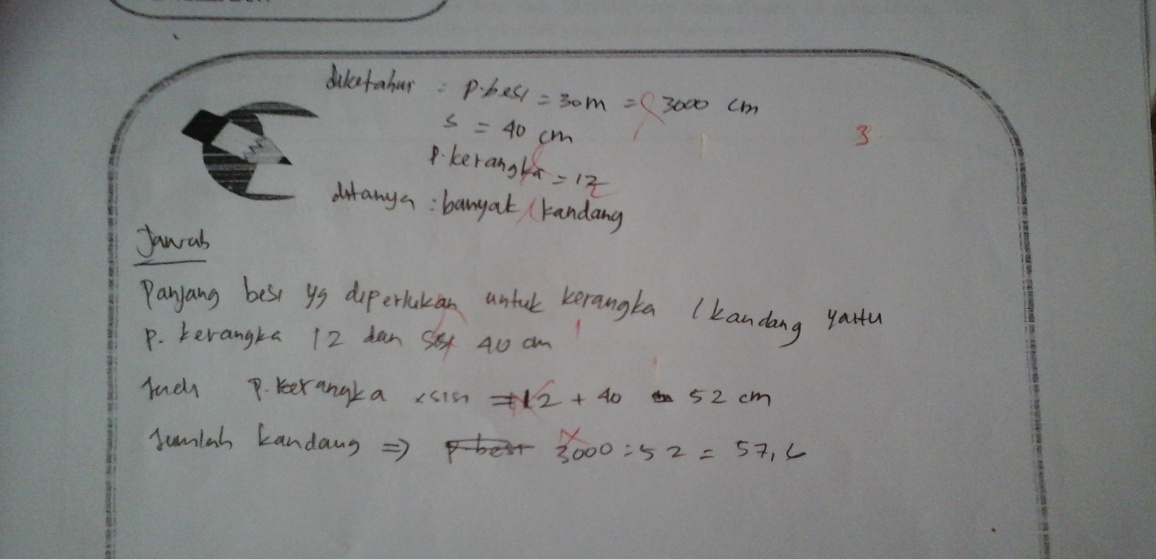 diketahui : p.besi = 30 m = 3000 cm
s = 40 cm
3
P.kerangka = 12
ditanya : banyak kandang
Jawab
Panjang besi yg diperlukan untuk kerangka 1 kandang yaitu
p. kerangka 12 dan sisi 40 cm
Jadi P.kerangka x sisi = 12 + 40 = 52 cm
Jumlah kandang => p besi 3000 : 52 = 57,6